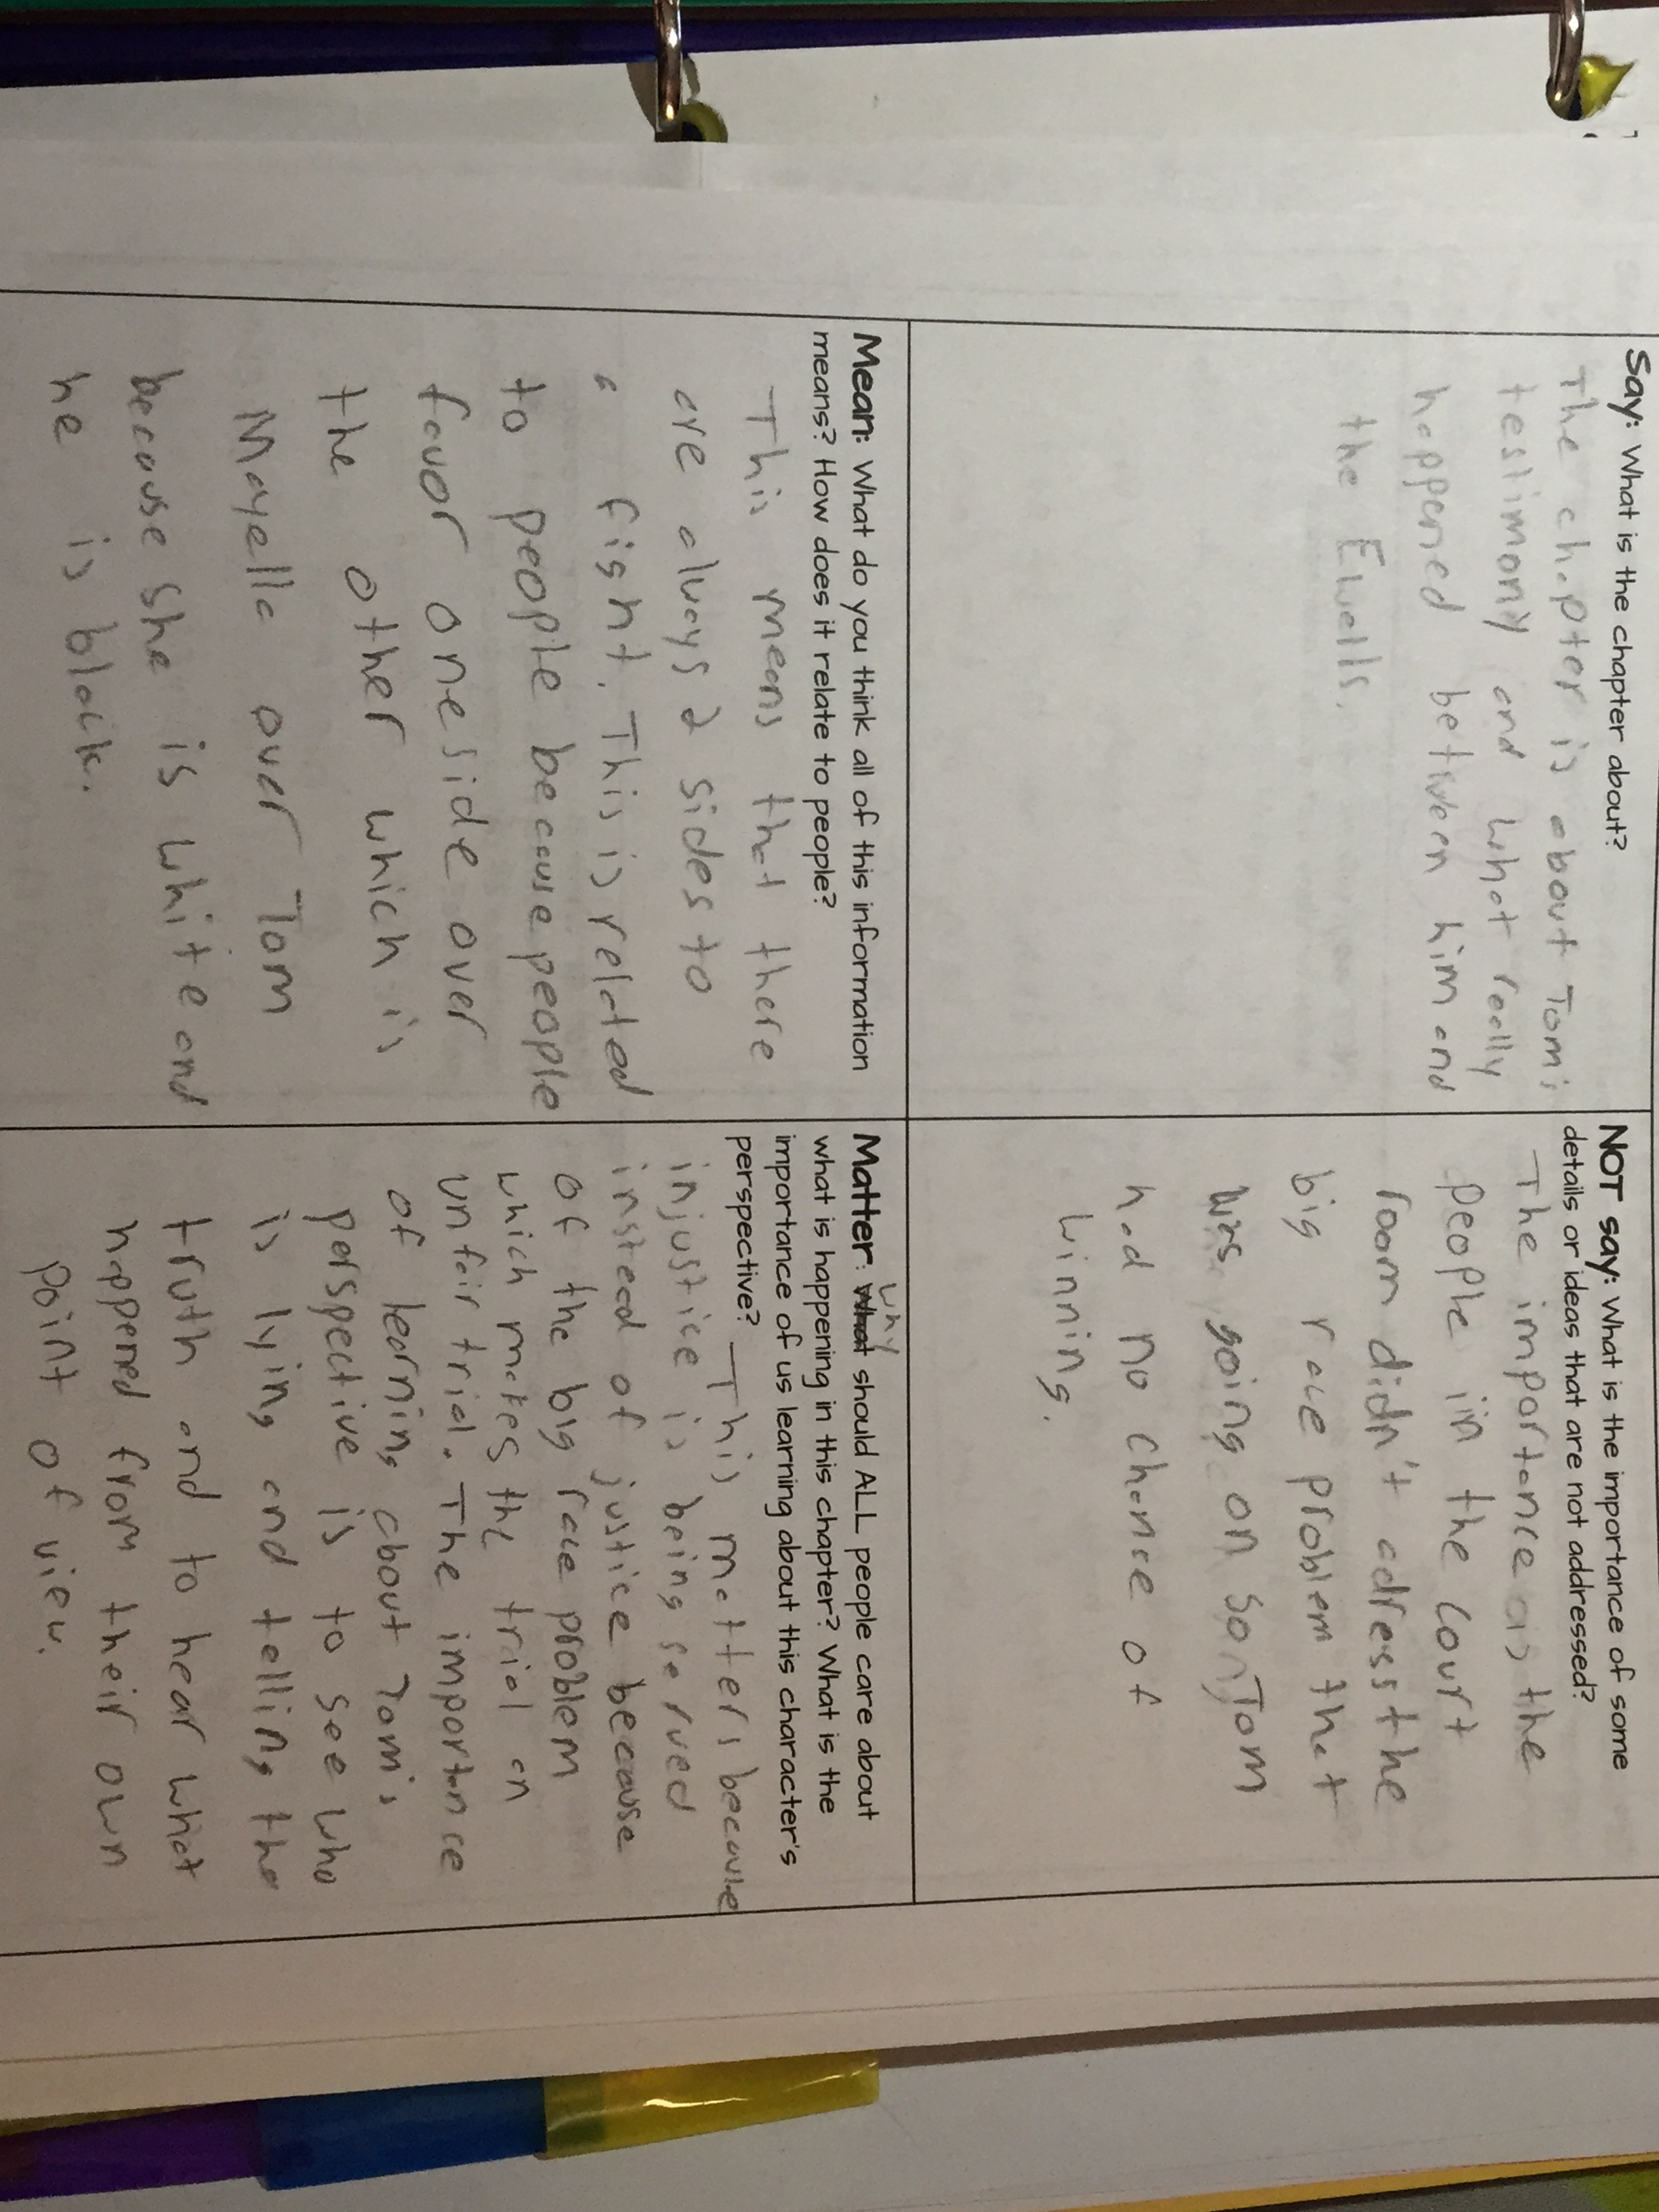 Say: What is the chapter about?
The chapter is about Tom's
testimony and what really
happened between him and
the Ewells.
NOT say: What is the importance of some
details or ideas that are not addressed?
The importance is the
people in the court
room didn't adress the
big race problem that
was going on so Tom
had no chance of
winning.
Mean: What do you think all of this information
means? How does it relate to people?
This means that there
are always 2 sides to
a fight. This is related
to people because people
favor one side over
the other which is
Mayella over Tom
because she is white and
he is black.
why
Matter: What should ALL people care about
what is happening in this chapter? What is the
importance of us learning about this character's
perspective? This matters because
injustice is being served
instead of justice because
of the big race problem
which makes the trial an
unfair trial. The importance
of learning about Tom's
perspective is to see who
is lying and telling the
truth and to hear what
happened from their own
point of view.